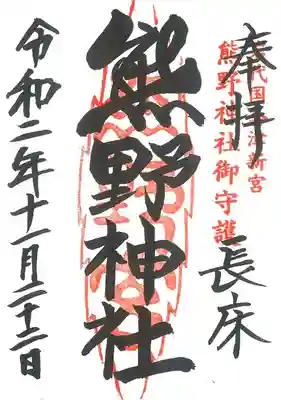 奉拝
代国会津新宮
熊野神社御守護
長床
熊野神社
令和二年十一月二十二日